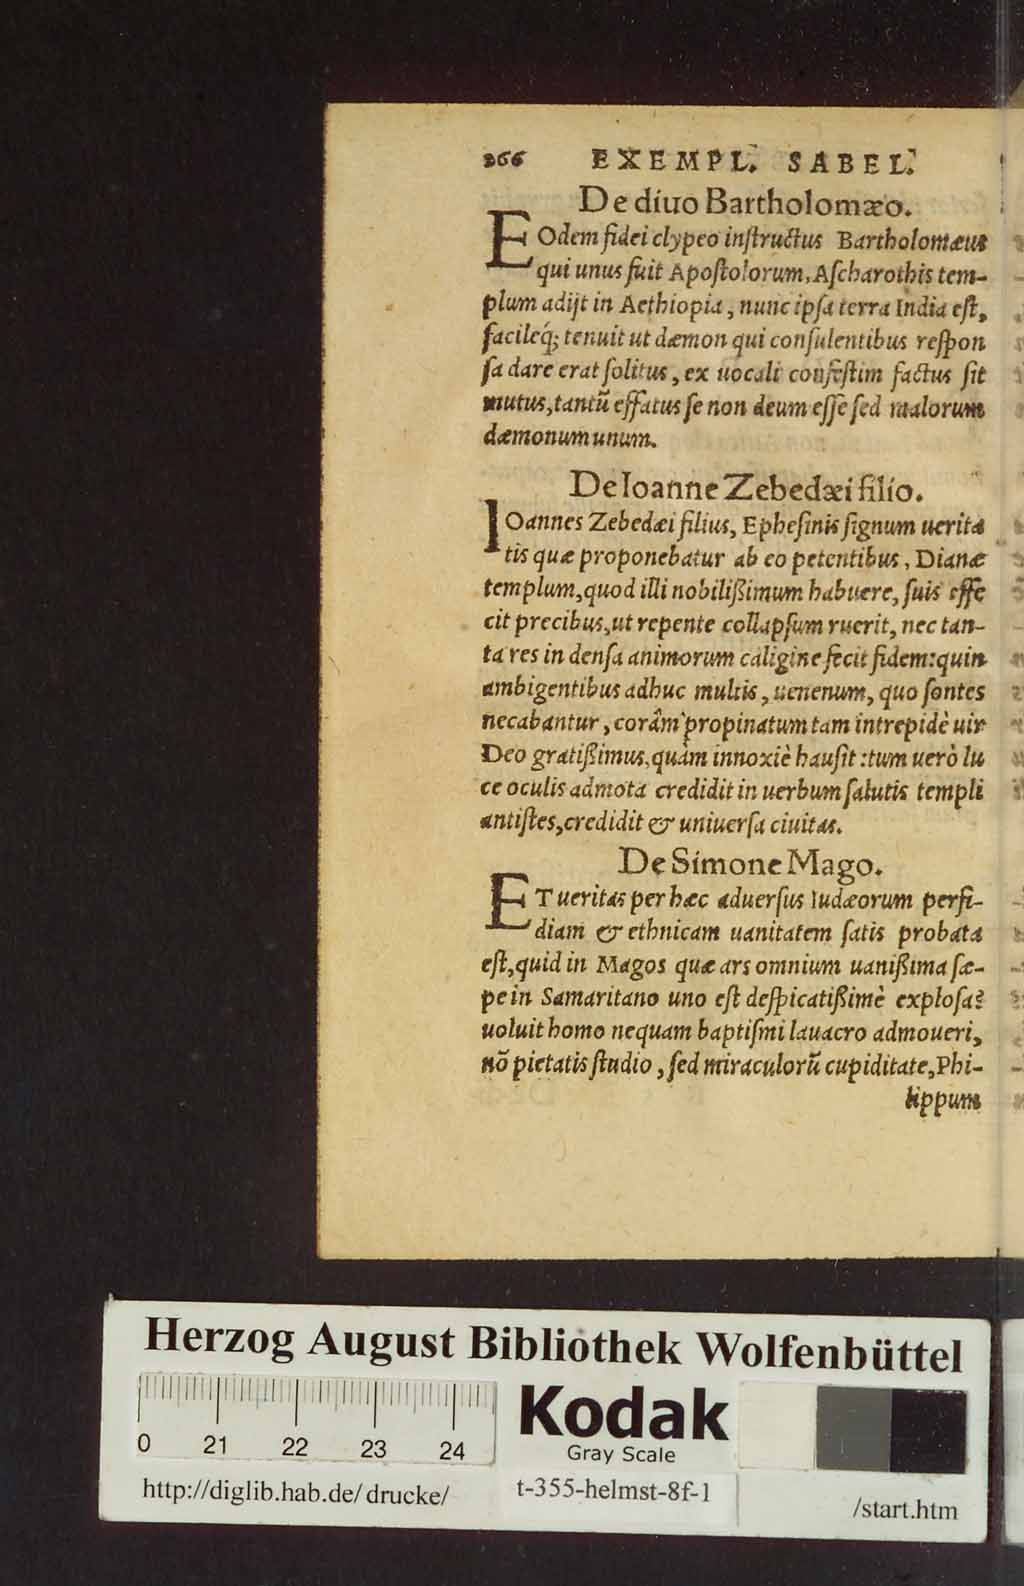 266 EXEMPL. SABEL.
De diuo Bartholomæo.
EOdem fidei clypeo inſtructus Bartholomæus
qui unus fuit Apoſtolorum, Aſcharothis tem-
plum adijt in Aethiopia, nunc ipſa terra India eſt,
facileq́; tenuit ut dæmon qui conſulentibus reſpon
ſa dare erat ſolitus, ex uocali confeſtim factus ſit
mutus, tantũ effatus ſe non deum eſſe ſed malorum
dæmonum unum.
De Ioanne Zebedæi filio.
IOannes Zebedæi filius, Epheſinis ſignum uerita
tis quæ proponebatur ab eo petentibus, Dianæ
templum, quod illi nobilißimum habuere, ſuis effe
cit precibus, ut repente collapſum ruerit, nec tan-
ta res in denſa animorum caligine fecit fidem: quin
ambigentibus adhuc multis, uenenum, quo ſontes
necabantur, corâm propinatum tam intrepidè uir
Deo gratißimus, quàm innoxiè hauſit: tum uerò lu
ce oculis admota credidit in uerbum ſalutis templi
antiſtes, credidit & uniuerſa ciuitas.
De Simone Mago.
ET ueritas per hæc aduerſus Iudæorum perfi-
diam & ethnicam uanitatem ſatis probata
eſt, quid in Magos quæ ars omnium uanißima ſæ-
pe in Samaritano uno eſt deſpicatißimè exploſa?
uoluit homo nequam baptiſmi lauacro admoueri,
nõ pietatis ſtudio, ſed miraculorũ cupiditate, Phi-
lippum
Herzog August Bibliothek Wolfenbüttel
0 21 22 23 24
Kodak
Gray Scale
http://diglib.hab.de/drucke/ t-355-helmst-8f-1 /start.htm